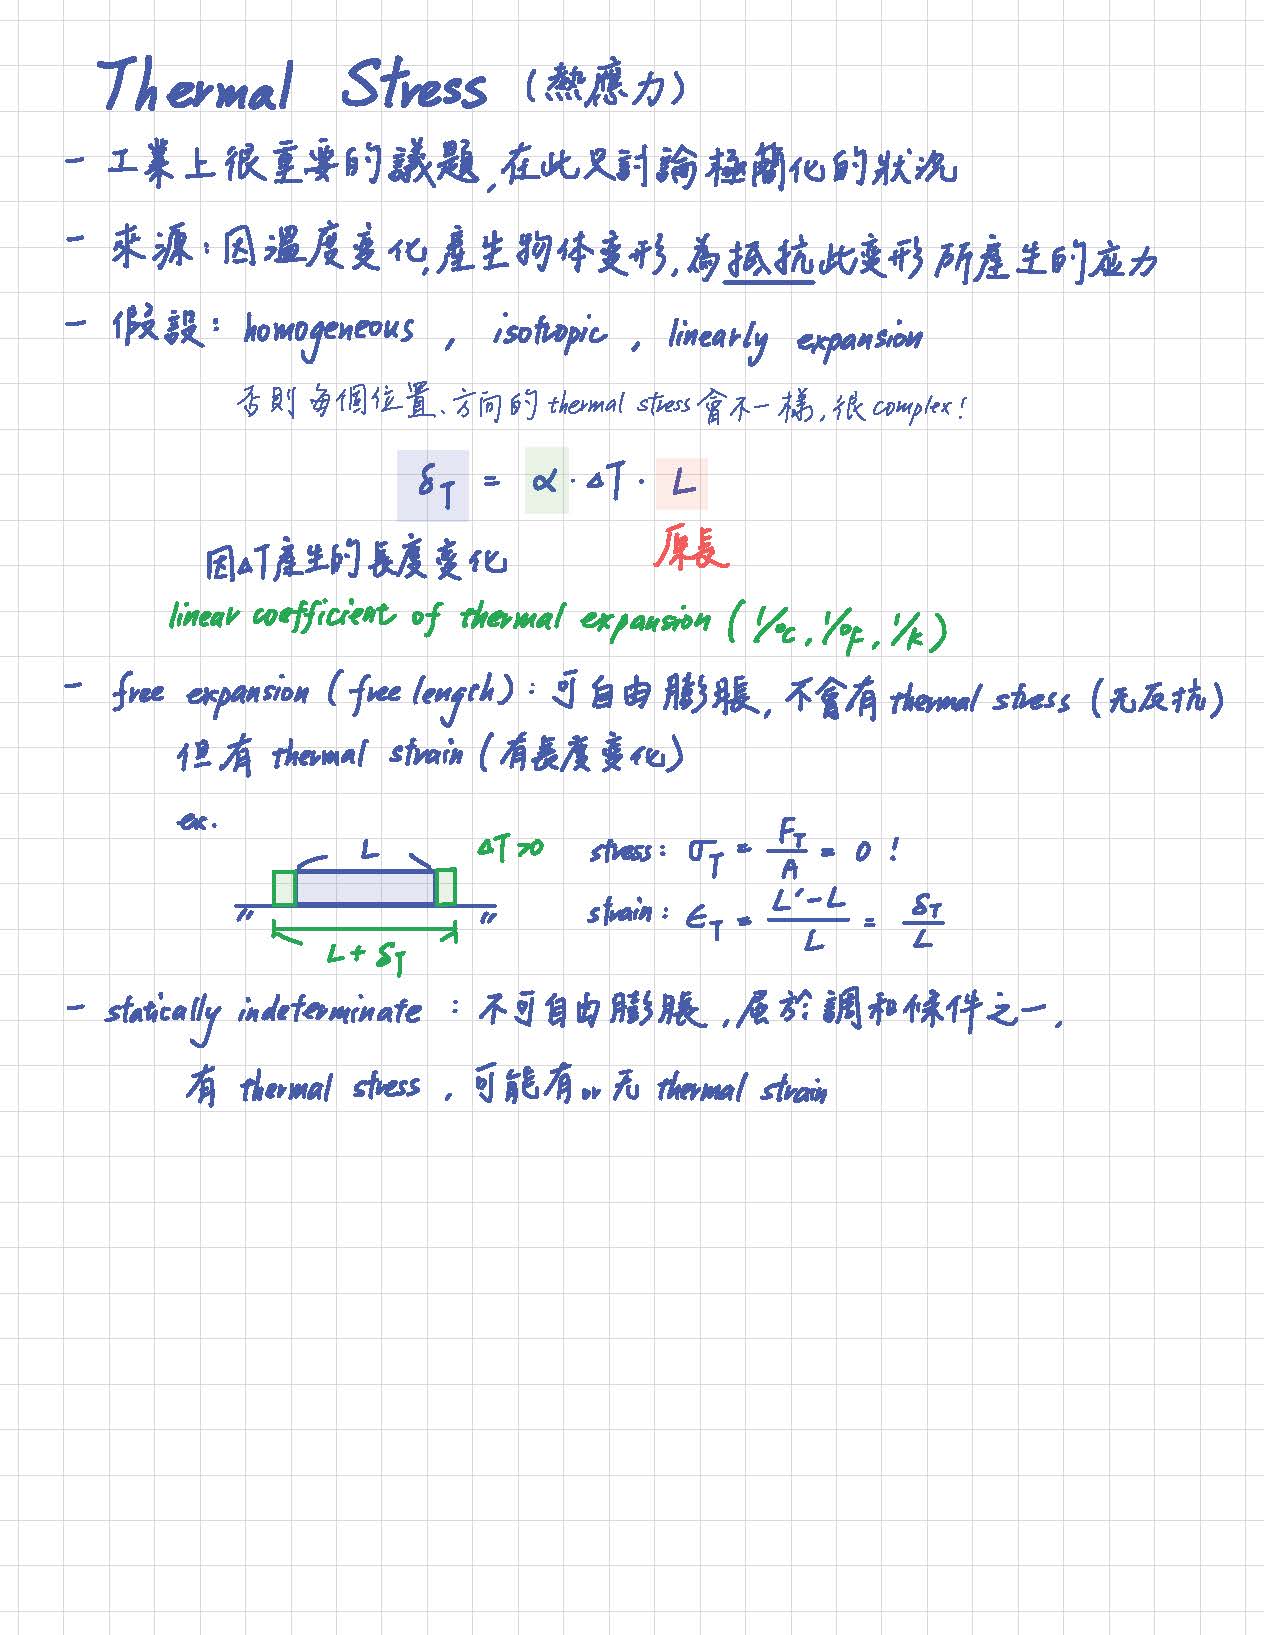 Thermal Stress (熱應力)
- 工業上很重要的議題,在此只討論極簡化的狀況
- 來源:因溫度变化,產生物体变形,為抵抗此变形所產生的应力
- 假設: homogeneous , isotropic , linearly expansion
否則每個位置、方向的thermal stress會不一樣,很complex!
δT = α · ΔT · L
因ΔT產生的長度变化 原長
linear coefficient of thermal expansion ( 1/°C, 1/°F, 1/K )
- free expansion ( free length ) : 可自由膨脹, 不會有 thermal stress (无反抗)
但有 thermal strain ( 有長度变化 )
ex.
L ΔT>0 stress: σT = FT/A = 0 !
strain: ϵT = L'-L/L = δT/L
L + δT
- statically indeterminate : 不可自由膨脹 , 屬於調和條件之一,
有 thermal stress , 可能有 or 无 thermal strain